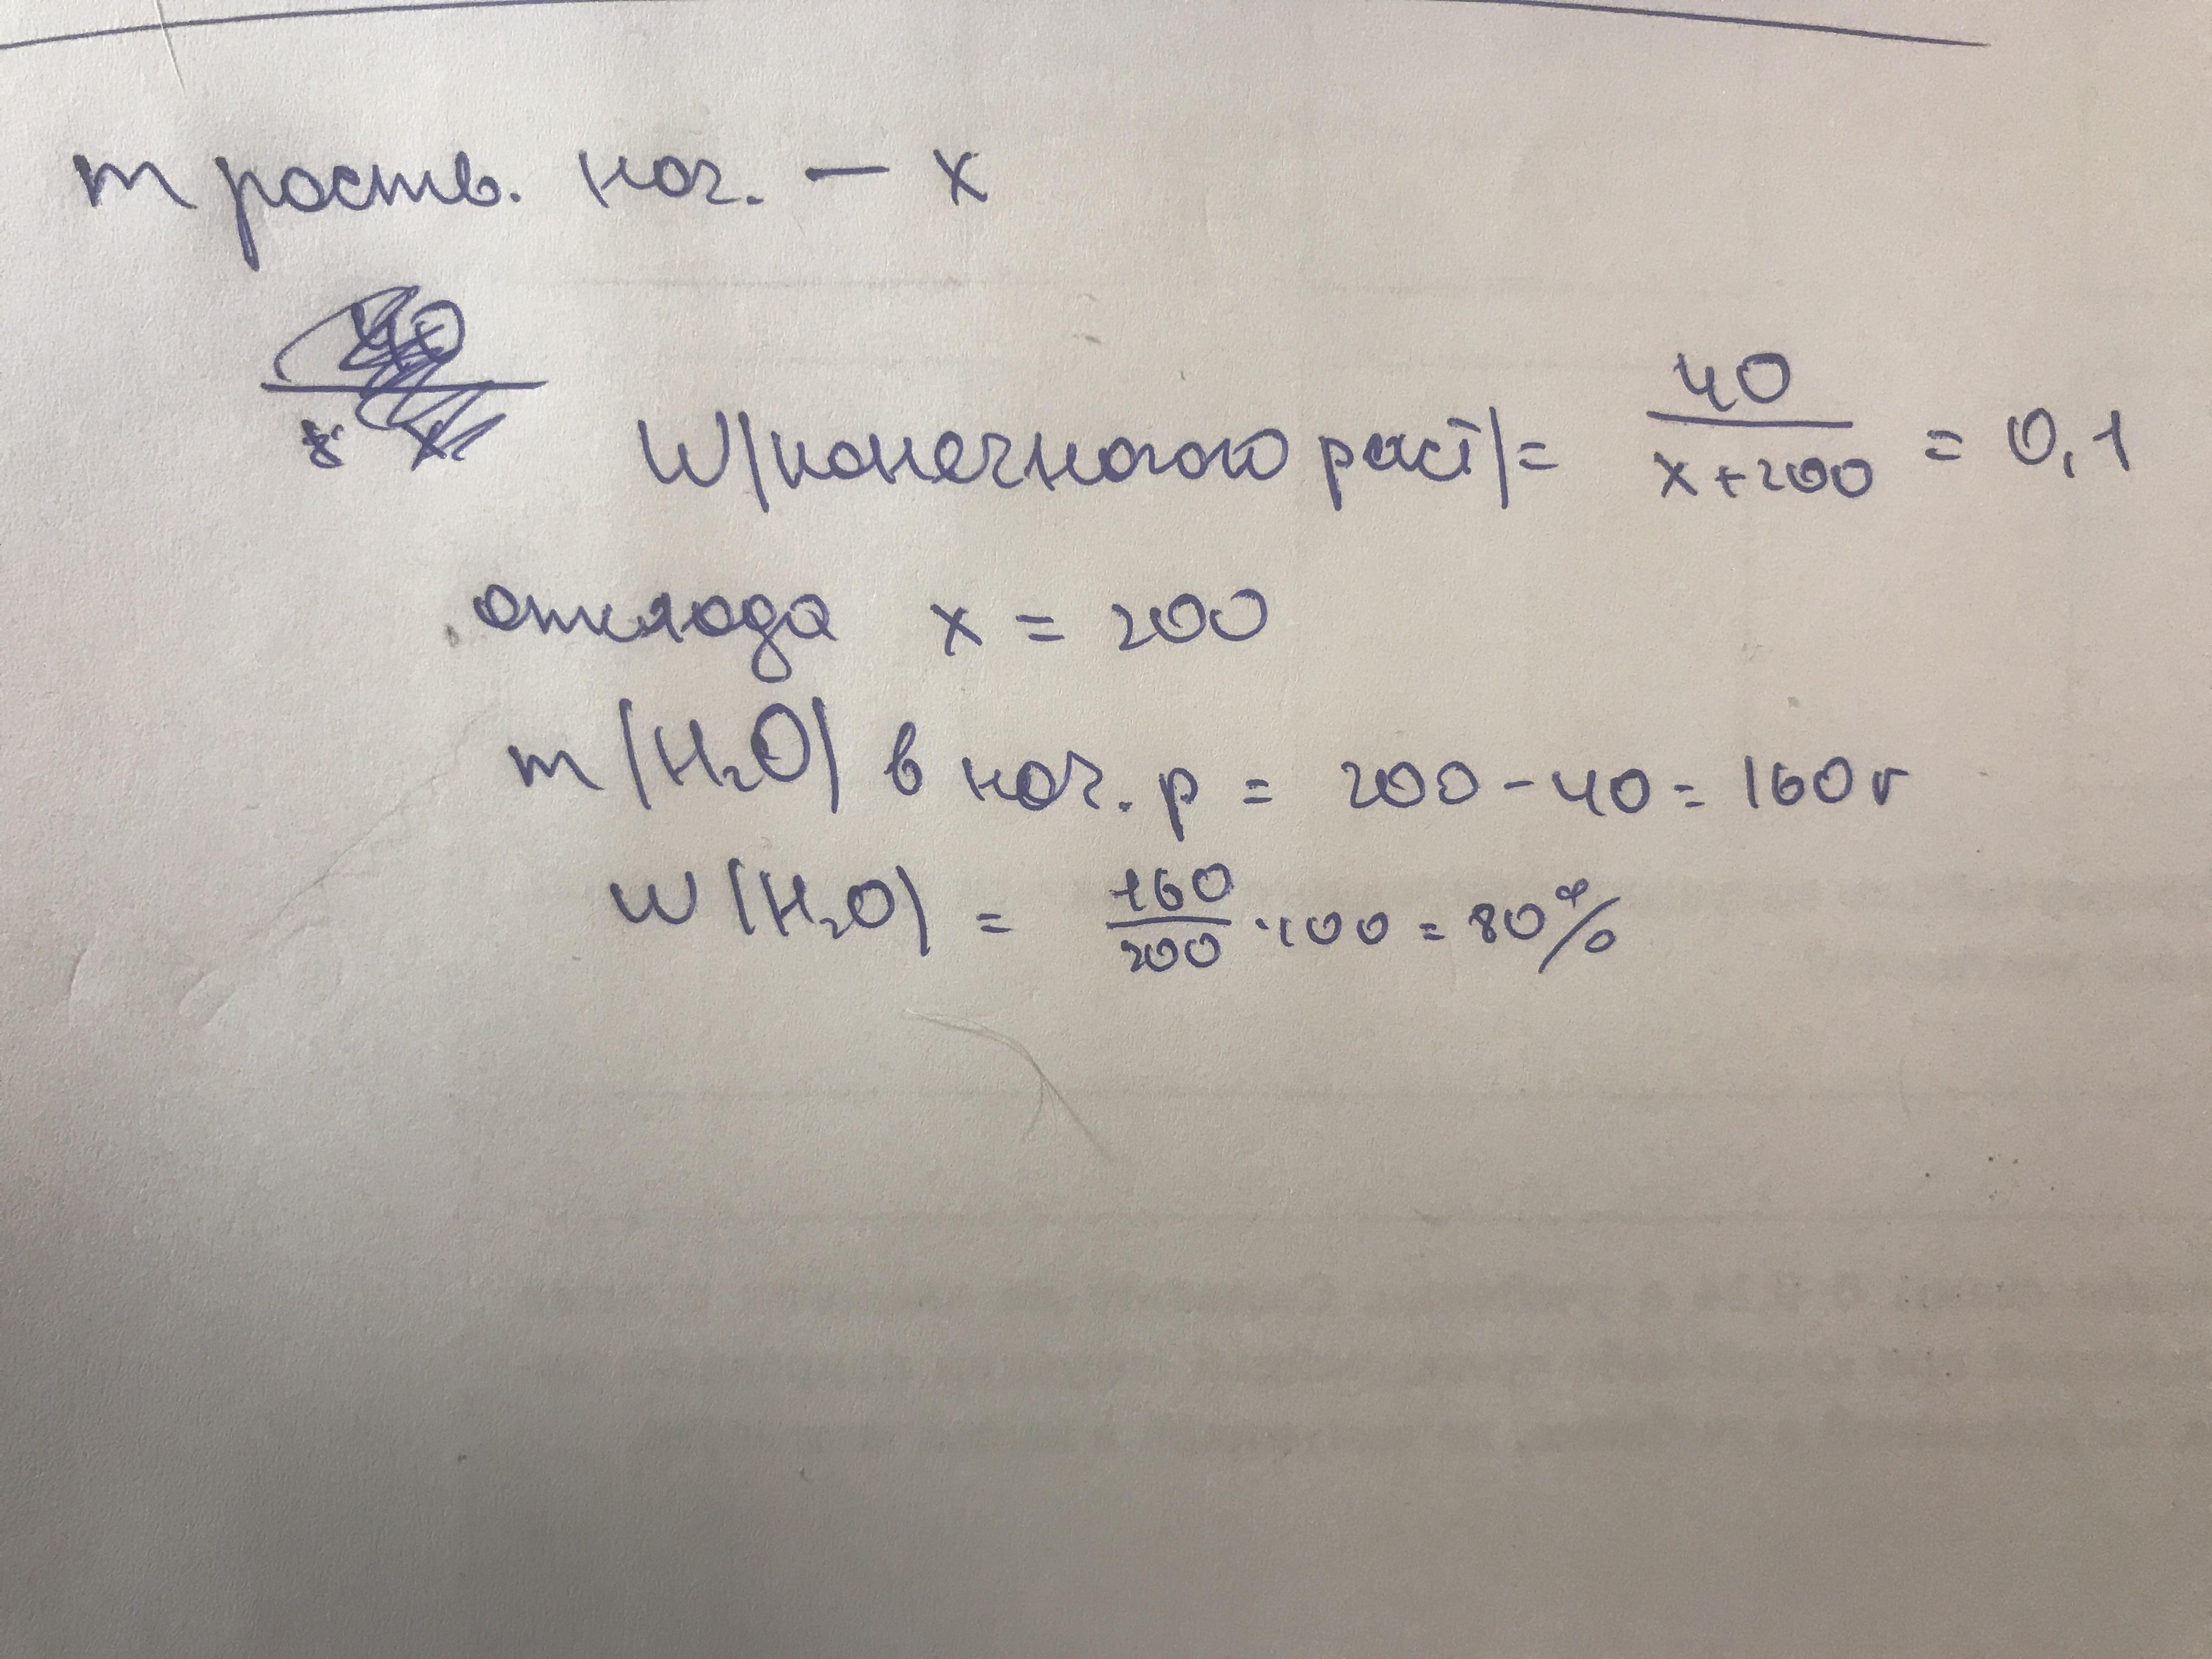 m раств. нач. — x
W(конечного раст) = 40/(x+200) = 0,1
откюда x = 200
m(H₂O) в нач. р = 200-40 = 160 г
W(H₂O) = 160/200 · 100 = 80%